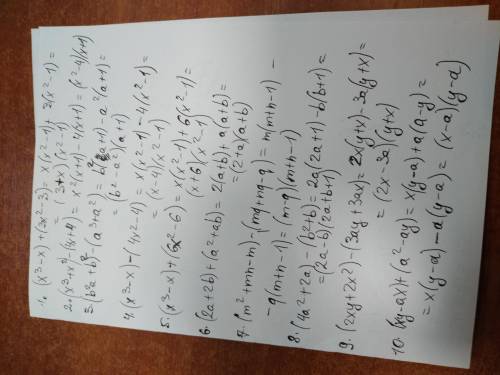 1. (x³-x)+(3x²-3) = x(x²-1)+3(x²-1) =
= (3+x)(x²-1)
2. (x³+x²)-(4x+4) = x²(x+1)-4(x+1) = (x²-4)(x+1)
3. (b²a+b²)-(a³+a²) = b²(a+1)-a²(a+1) =
= (b²-a²)(a+1)
4. (x³-x)-(4x²-4) = x(x²-1)-4(x²-1) =
= (x-4)(x²-1)
5. (x³-x)+(6x²-6) = x(x²-1)+6(x²-1) =
(x+6)(x²-1)
6. (2a+2b)+(a²+ab) = 2(a+b)+a(a+b) =
= (2+a)(a+b)
7. (m²+mn-m)-(mq+nq-q) = m(m+n-1)-
-q(m+n-1) = (m-q)(m+n-1)
8. (4a²+2a)-(b²+b) = 2a(2a+1)-b(b+1) =
= (2a-b)(2a+b+1)
9. (2xy+2x²)-(3ay+3ax) = 2x(y+x)-3a(y+x) =
= (2x-3a)(y+x)
10. (xy-ax)+(a²-ay) = x(y-a)+a(a-y) =
= x(y-a)-a(y-a) = (x-a)(y-a)